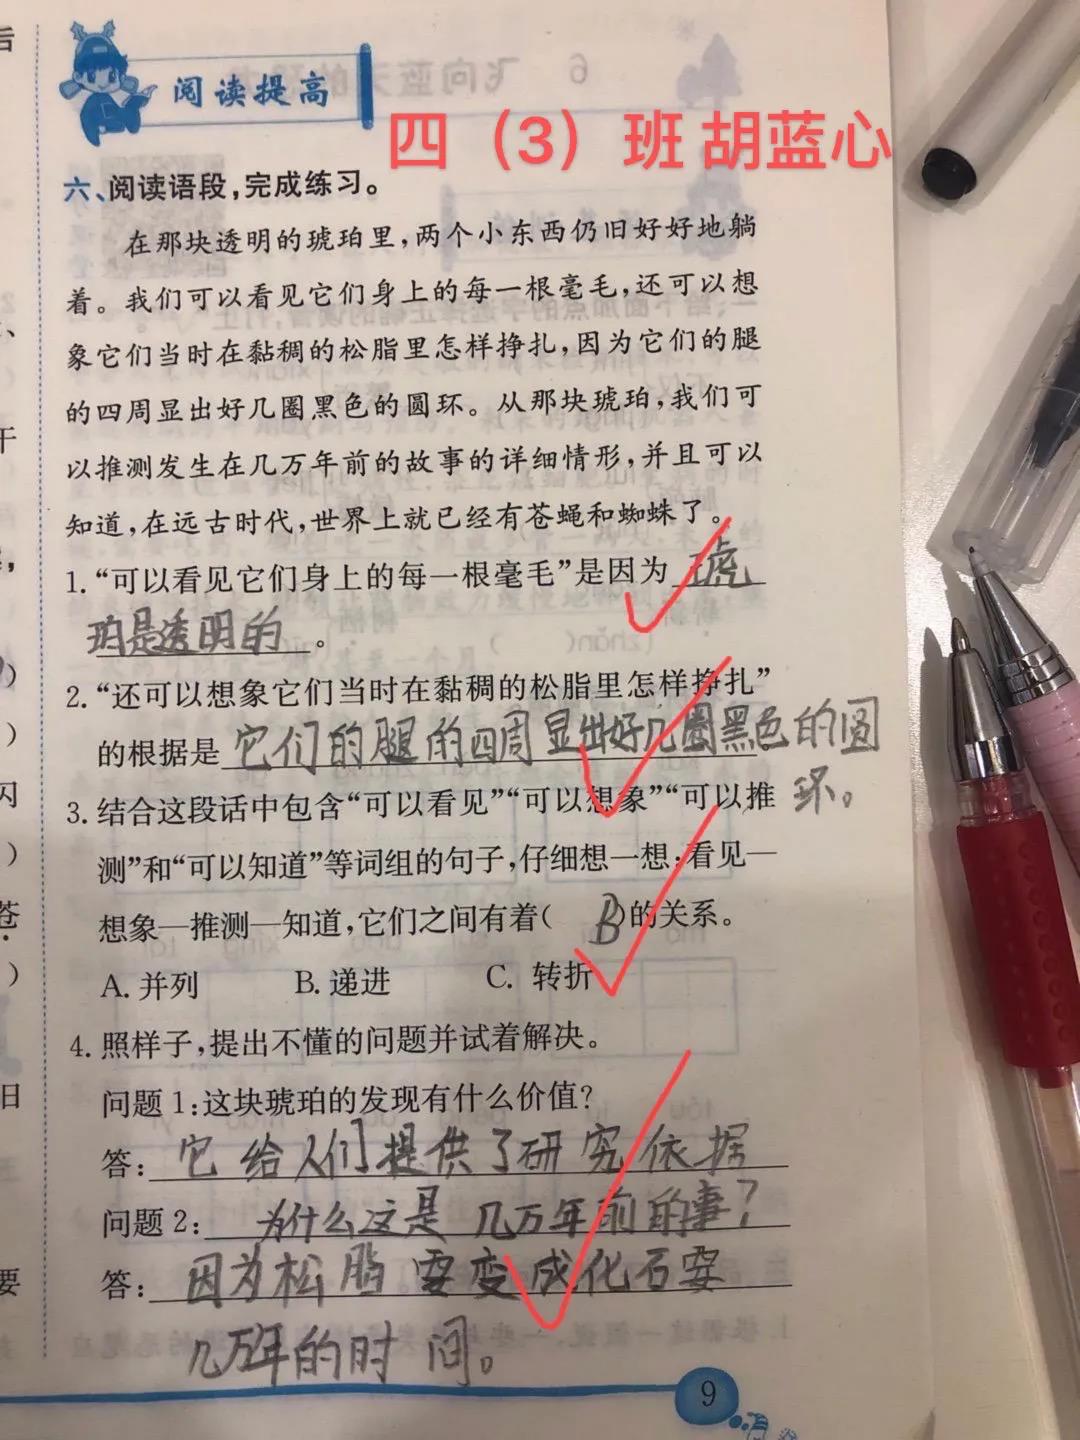 阅读提高
四（3）班 胡蓝心
六、阅读语段，完成练习。
在那块透明的琥珀里，两个小东西仍旧好好地躺
着。我们可以看见它们身上的每一根毫毛，还可以想
象它们当时在黏稠的松脂里怎样挣扎，因为它们的腿
的四周显出好几圈黑色的圆环。从那块琥珀，我们可
以推测发生在几万年前的故事的详细情形，并且可以
知道，在远古时代，世界上就已经有苍蝇和蜘蛛了。
1.“可以看见它们身上的每一根毫毛”是因为 琥
珀是透明的 。
2.“还可以想象它们当时在黏稠的松脂里怎样挣扎”
的根据是 它们的腿的四周显出好几圈黑色的圆
环。
3.结合这段话中包含“可以看见”“可以想象”“可以推
测”和“可以知道”等词组的句子，仔细想一想：看见—
想象—推测—知道，它们之间有着（ B ）的关系。
A. 并列 B. 递进 C. 转折
4.照样子，提出不懂的问题并试着解决。
问题1：这块琥珀的发现有什么价值？
答：它给人们提供了研究依据
问题2：为什么这是几万年前的事？
答：因为松脂要变成化石要
几万年的时间。
9